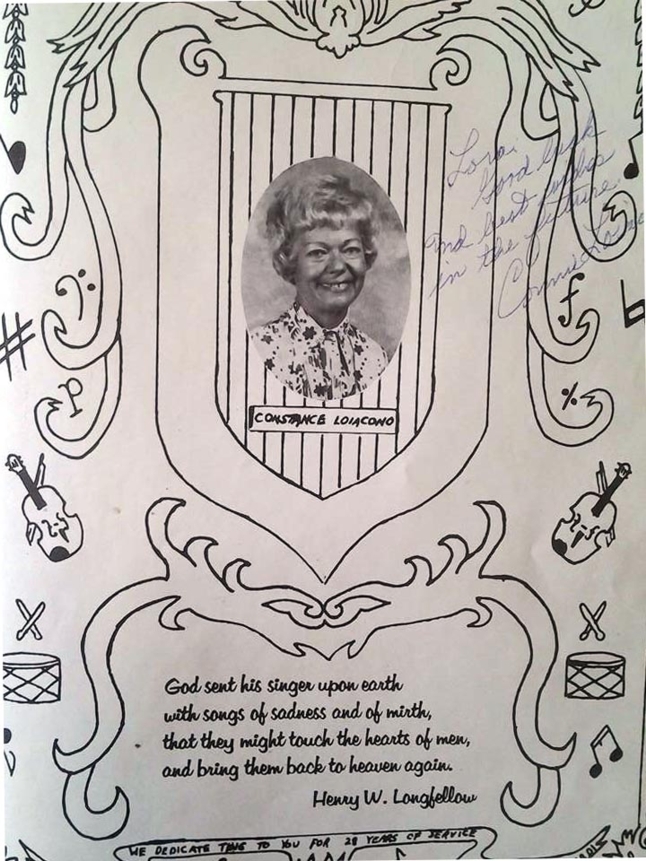 Lora:
Good luck
and best wishes
in the future.
Connie
CONSTANCE LOIACONO
God sent his singer upon earth
with songs of sadness and of mirth,
that they might touch the hearts of men,
and bring them back to heaven again.
Henry W. Longfellow
WE DEDICATE THIS TO YOU FOR 28 YEARS OF SERVICE